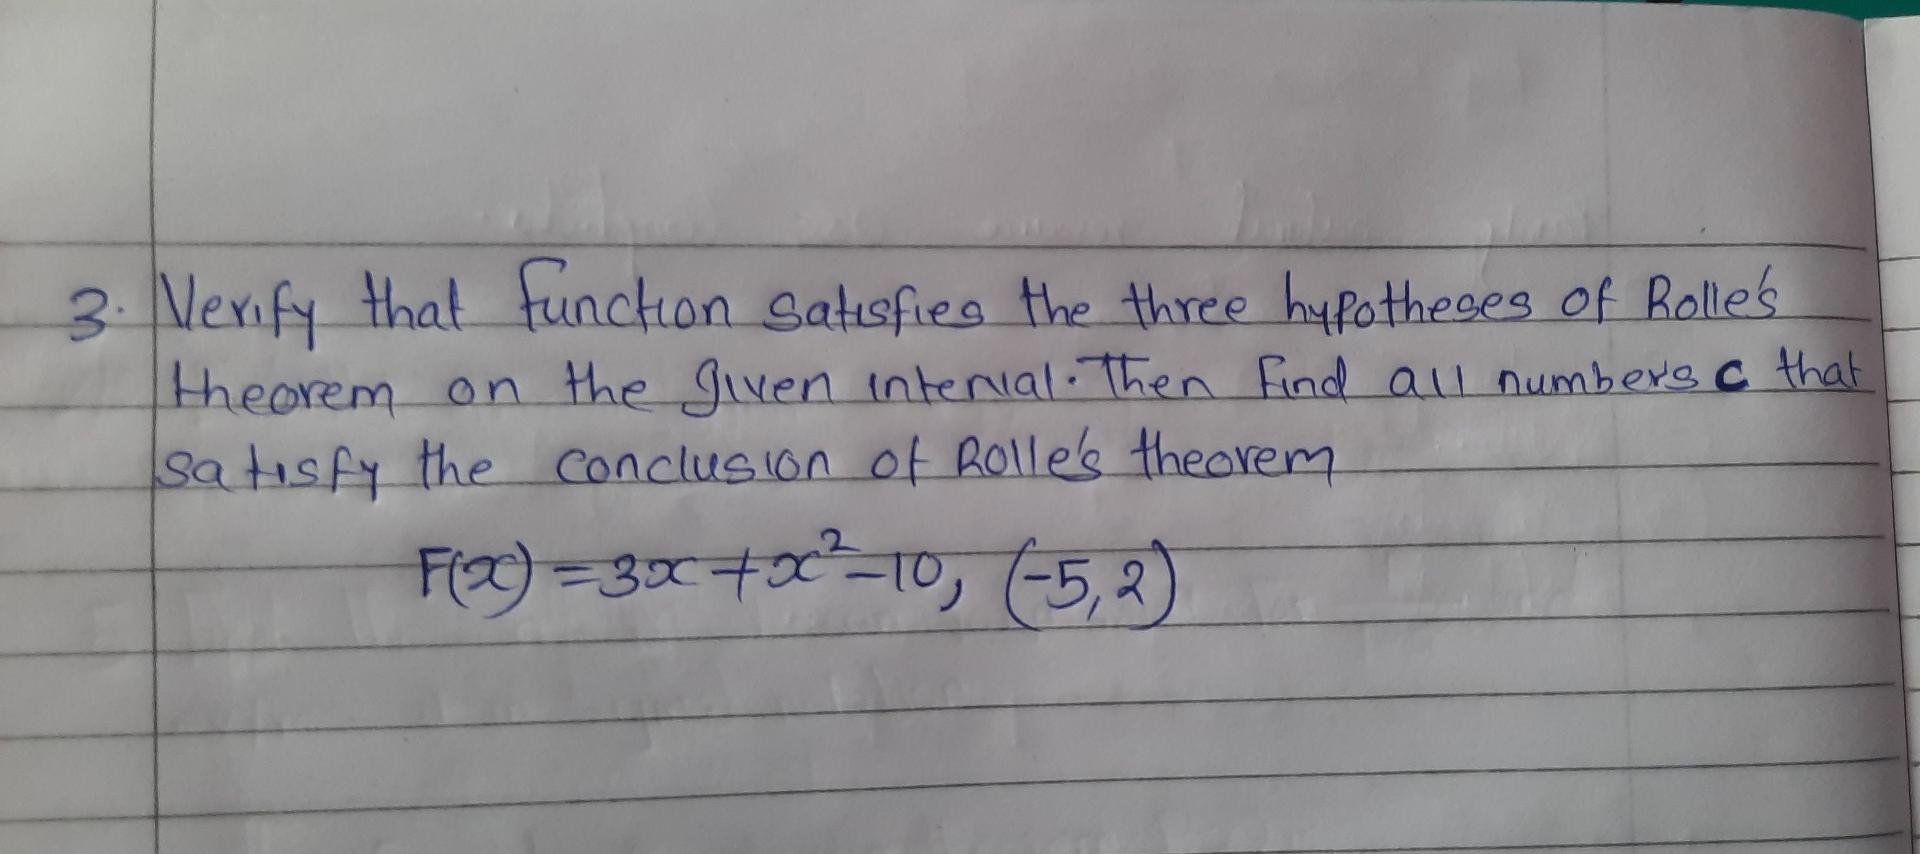 3. Verify that function satisfies the three hypotheses of Rolle's
theorem on the given interval. Then find all numbers c that
satisfy the conclusion of Rolle's theorem
F(x) = 3x + x² - 10, (-5, 2)